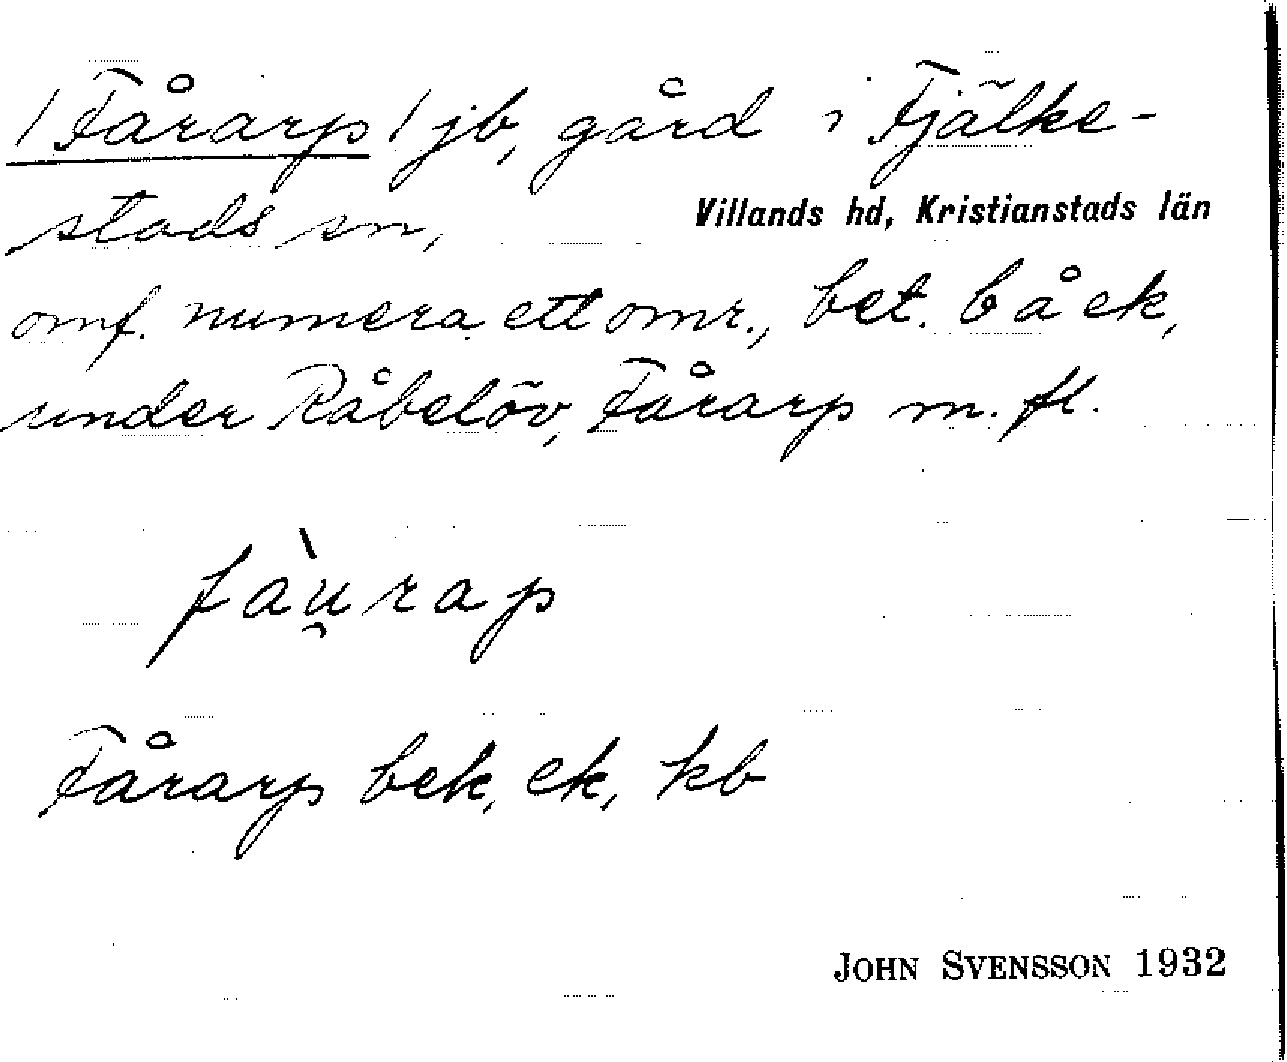 /Fårarp/ jb, gård i Fjälke-
stads sn,
Villands hd, Kristianstads län
omf. numera ett omr., bet. båek,
under Råbelöv, Fårarp m. fl.
fàu̯rap
Fårarp bek, ek, kb
JOHN SVENSSON 1932